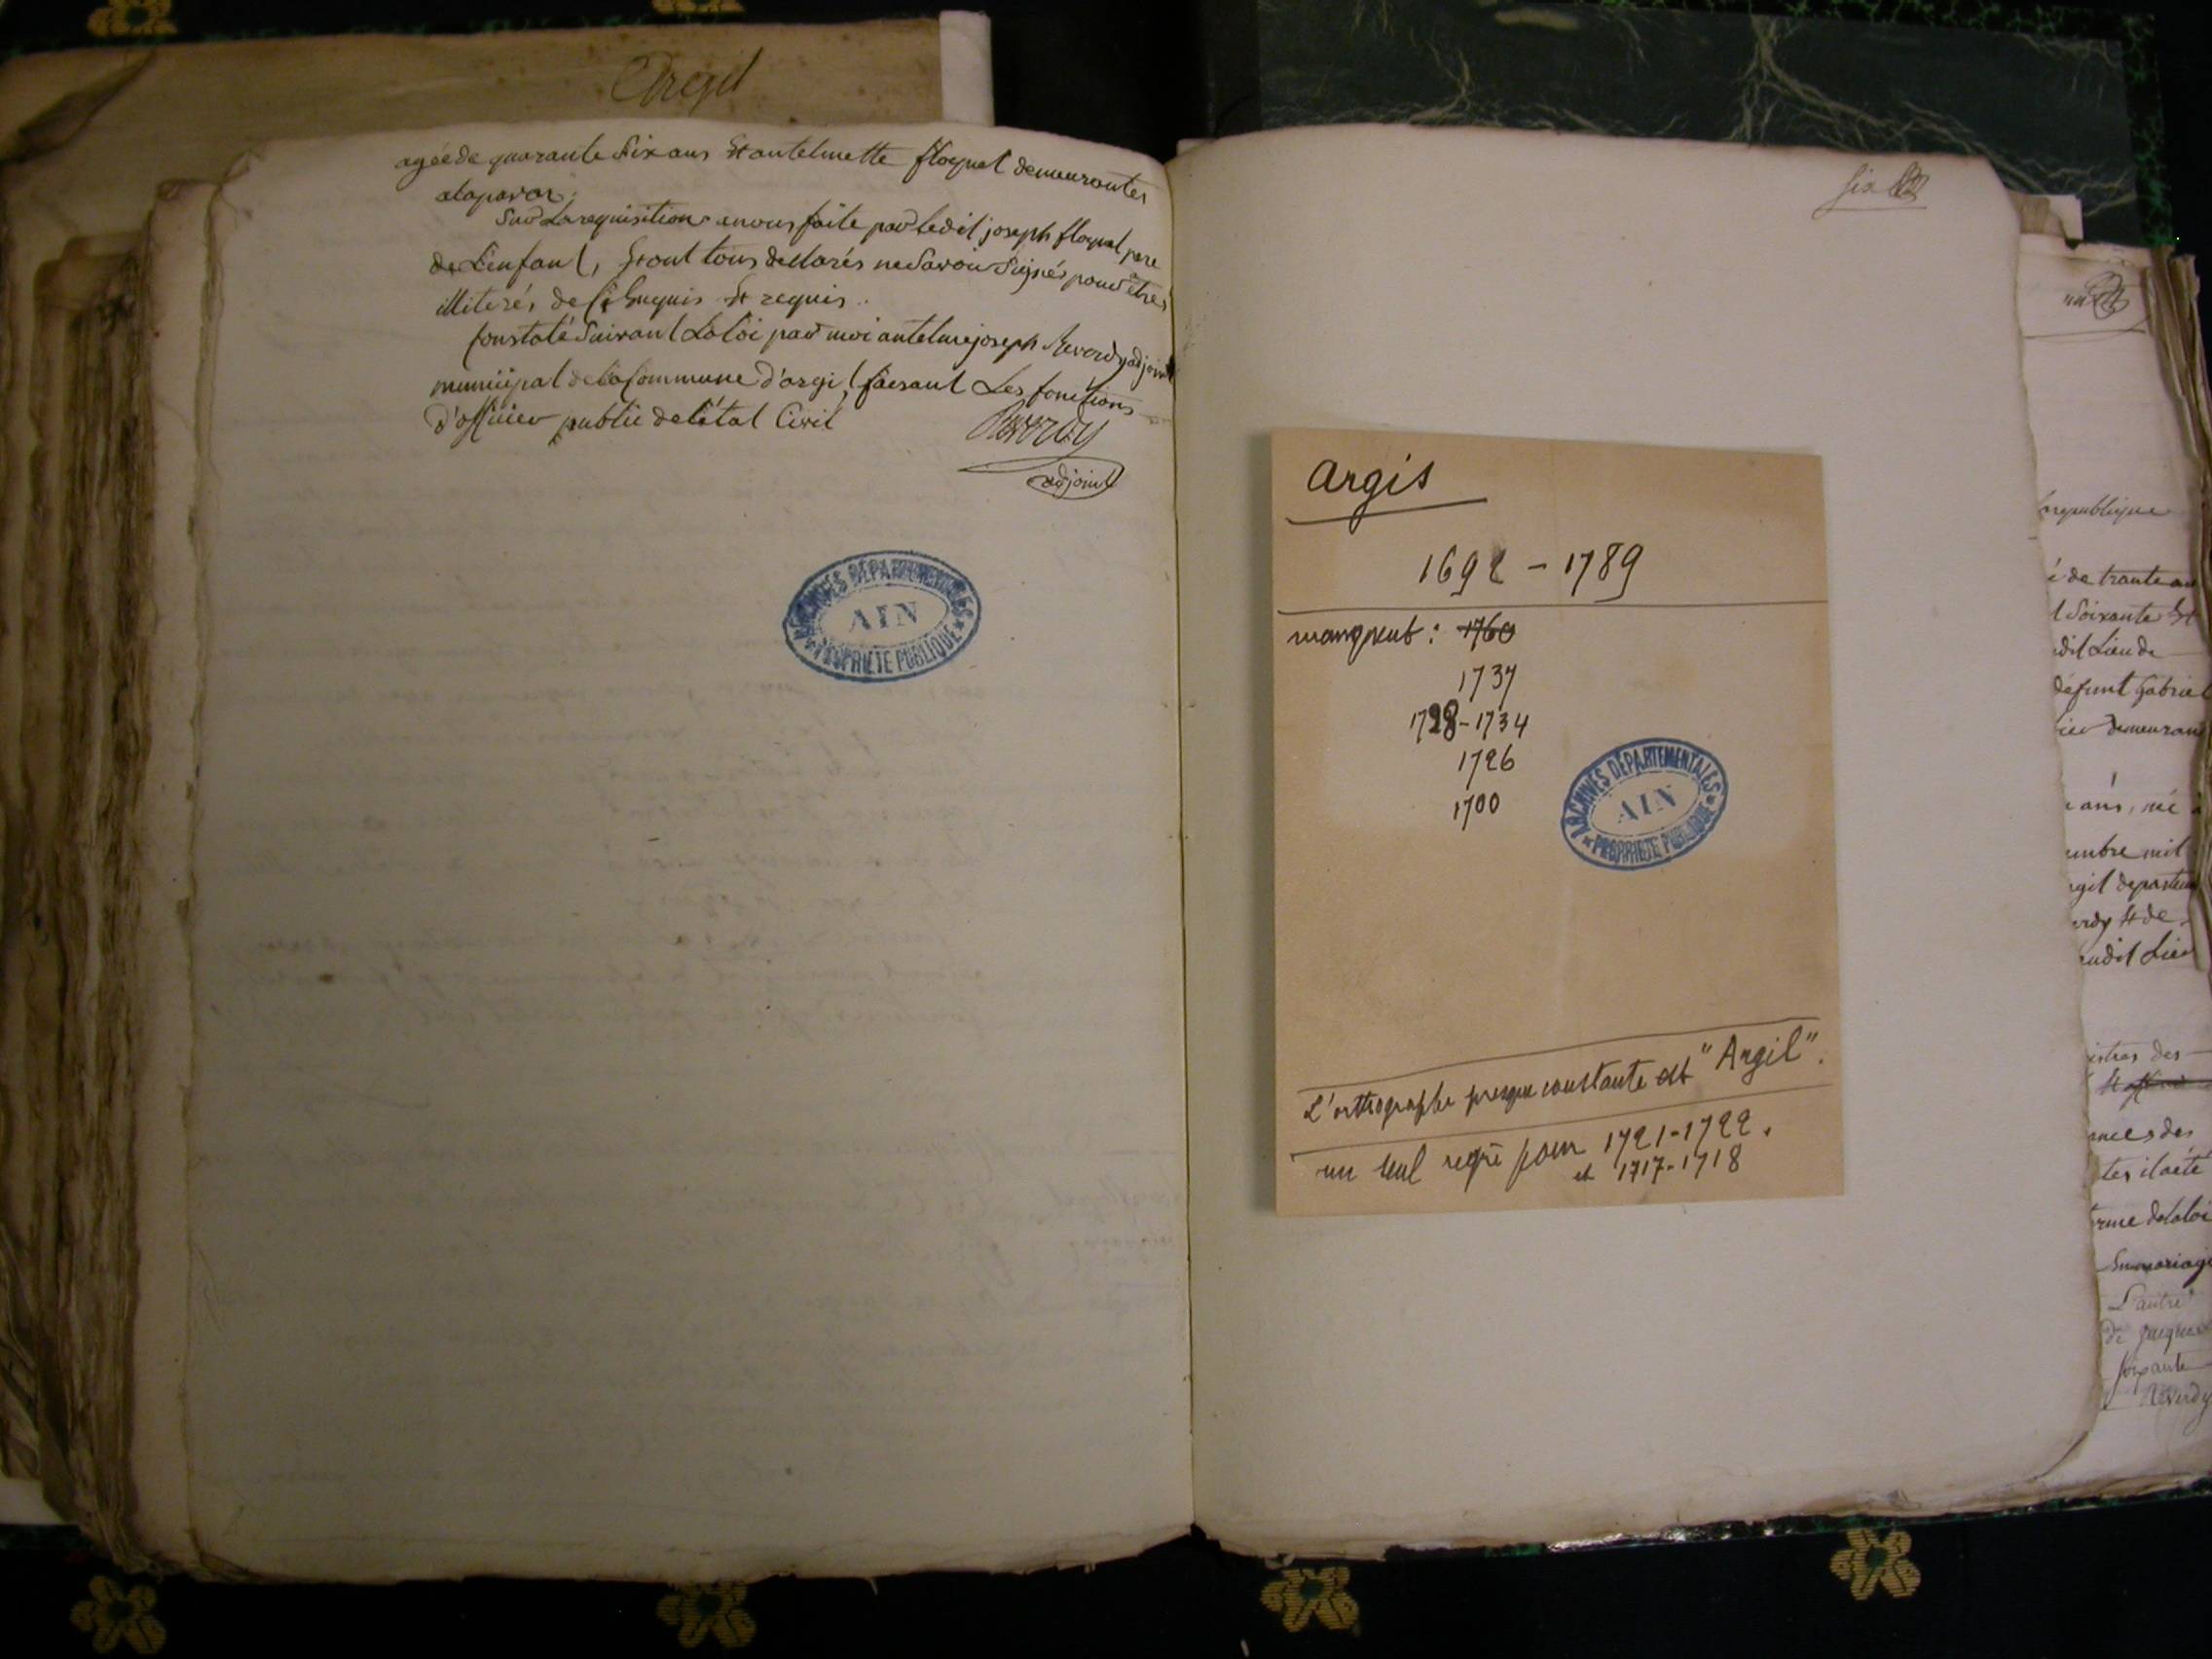 Argil
agée de quarante Six ans Et antelmette floquet demeurantes
alaparor;
Sur La requisition anous faite par ledit joseph floquet pere
de L'enfant, Et ont tous declarés ne Savoir Signés pour êtres
illiterés de Ce Enquis Et requis.
Constaté Suivant La loi par moi antelme joseph Reverdy adjoint
municipal de la Commune d'argil faesant Les fonctions
d'officier public de l'état Civil
Reverdy
adjoint
ARCHIVES DÉPARTEMENTALES
AIN
PROPRIÉTÉ PUBLIQUE
six
argis
1692 - 1789
manquent : 1760
1737
1728-1734
1726
1700
ARCHIVES DÉPARTEMENTALES
AIN
PROPRIÉTÉ PUBLIQUE
L'orthographe presque constante est "Argil".
un seul regre pour 1721-1722.
et 1717-1718
republique
é de trante an
t Soixante Et
dit Lieu de
défunt Gabriel
demeuran
ans, né
embre mil
rgil departem
rdy Et de
audit Lieu
istres des
nces des
tes il a été
rme de la loi
En mariage
L'autre
de jacques
soixante
Reverdy